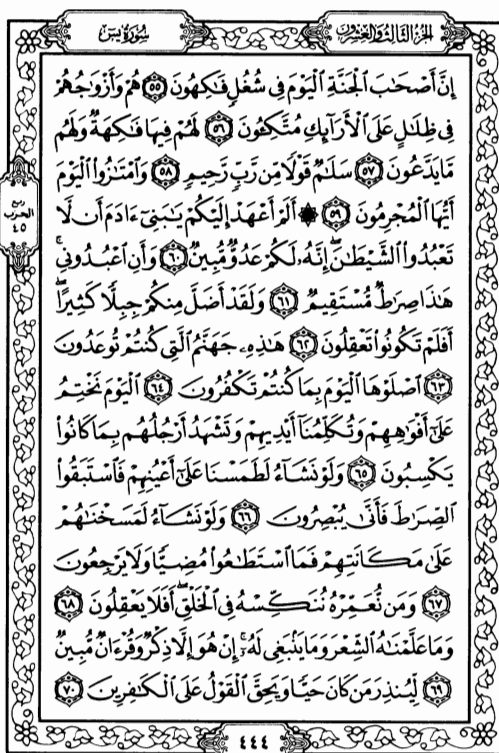 سُورَةُ يسٓ
الجُزْءُ الثَّالِثُ وَالْعِشْرُونَ
إِنَّ أَصْحَٰبَ ٱلْجَنَّةِ ٱلْيَوْمَ فِى شُغُلٍ فَٰكِهُونَ ٥٥ هُمْ وَأَزْوَٰجُهُمْ
فِى ظِلَٰلٍ عَلَى ٱلْأَرَآئِكِ مُتَّكِـُٔونَ ٥٦ لَهُمْ فِيهَا فَٰكِهَةٌ وَلَهُم
مَّا يَدَّعُونَ ٥٧ سَلَٰمٌ قَوْلًا مِّن رَّبٍّ رَّحِيمٍ ٥٨ وَٱمْتَٰزُوا۟ ٱلْيَوْمَ
أَيُّهَا ٱلْمُجْرِمُونَ ٥٩ ۞ أَلَمْ أَعْهَدْ إِلَيْكُمْ يَٰبَنِىٓ ءَادَمَ أَن لَّا
تَعْبُدُوا۟ ٱلشَّيْطَٰنَ ۖ إِنَّهُۥ لَكُمْ عَدُوٌّ مُّبِينٌ ٦٠ وَأَنِ ٱعْبُدُونِى ۚ
هَٰذَا صِرَٰطٌ مُّسْتَقِيمٌ ٦١ وَلَقَدْ أَضَلَّ مِنكُمْ جِبِلًّا كَثِيرًا ۖ
أَفَلَمْ تَكُونُوا۟ تَعْقِلُونَ ٦٢ هَٰذِهِۦ جَهَنَّمُ ٱلَّتِى كُنتُمْ تُوعَدُونَ
٦٣ ٱصْلَوْهَا ٱلْيَوْمَ بِمَا كُنتُمْ تَكْفُرُونَ ٦٤ ٱلْيَوْمَ نَخْتِمُ
عَلَىٰٓ أَفْوَٰهِهِمْ وَتُكَلِّمُنَآ أَيْدِيهِمْ وَتَشْهَدُ أَرْجُلُهُم بِمَا كَانُوا۟
يَكْسِبُونَ ٦٥ وَلَوْ نَشَآءُ لَطَمَسْنَا عَلَىٰٓ أَعْيُنِهِمْ فَٱسْتَبَقُوا۟
ٱلصِّرَٰطَ فَأَنَّىٰ يُبْصِرُونَ ٦٦ وَلَوْ نَشَآءُ لَمَسَخْنَٰهُمْ
عَلَىٰ مَكَانَتِهِمْ فَمَا ٱسْتَطَٰعُوا۟ مُضِيًّا وَلَا يَرْجِعُونَ
٦٧ وَمَن نُّعَمِّرْهُ نُنَكِّسْهُ فِى ٱلْخَلْقِ ۖ أَفَلَا يَعْقِلُونَ ٦٨
وَمَا عَلَّمْنَٰهُ ٱلشِّعْرَ وَمَا يَنۢبَغِى لَهُۥٓ ۚ إِنْ هُوَ إِلَّا ذِكْرٌ وَقُرْءَانٌ مُّبِينٌ
٦٩ لِّيُنذِرَ مَن كَانَ حَيًّا وَيَحِقَّ ٱلْقَوْلُ عَلَى ٱلْكَٰفِرِينَ ٧٠
ربع
الحزب
٤٥
٤٤٤